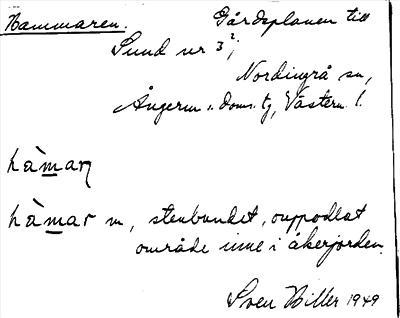 Hammaren. Gårdsplanen till
Sund nr 3²,
Nordingrå sn,
Ångerm. s. doms. tg, Västern. l.
hàmaṇ
hàmar m, stenbundet, ouppodlat
område inne i åkerjorden.
Sven Hiller 1949